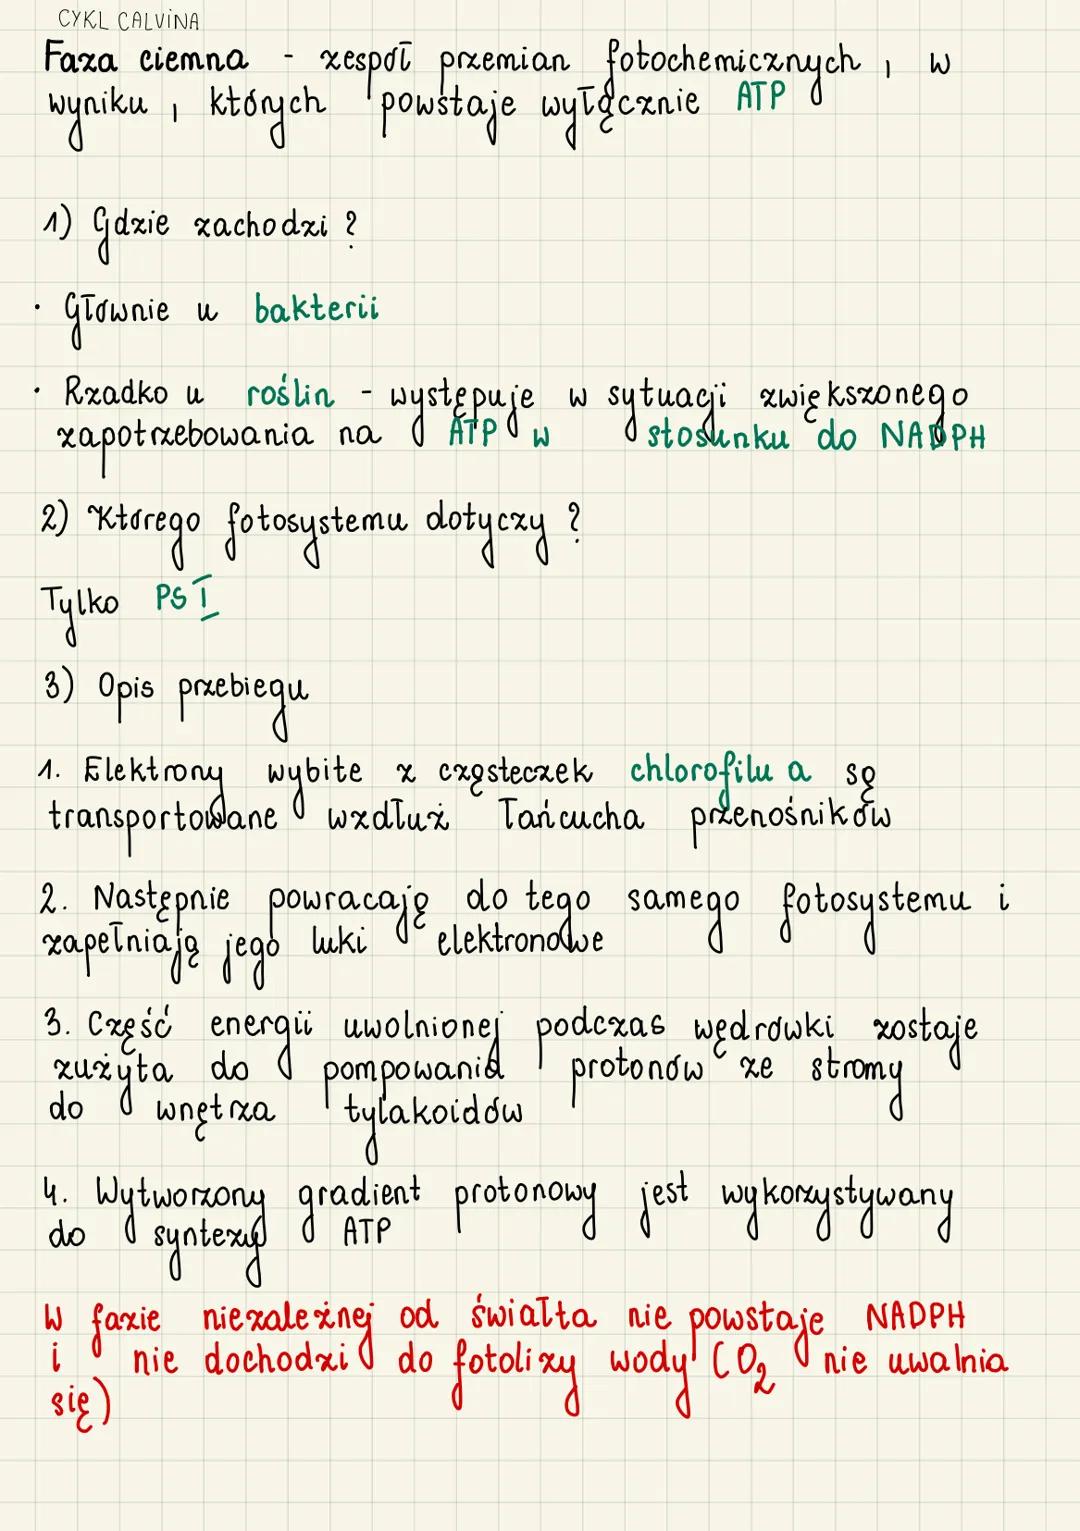 CYKL CALVINA
Faza ciemna - zespół przemian fotochemicznych, w
wyniku, których powstaje wyłącznie ATP
1) Gdzie zachodzi?
• Głównie u bakterii
• Rzadko u roślin - występuje w sytuacji zwiększonego
zapotrzebowania na ATP w stosunku do NADPH
2) Którego fotosystemu dotyczy?
Tylko PS I
3) Opis przebiegu
1. Elektrony wybite z cząsteczek chlorofilu a są
transportowane wzdłuż łańcucha przenośników
2. Następnie powracają do tego samego fotosystemu i
zapełniają jego luki elektronowe
3. Część energii uwolnionej podczas wędrówki zostaje
zużyta do pompowania protonów ze stromy
do wnętrza tylakoidów
4. Wytworzony gradient protonowy jest wykorzystywany
do syntezy ATP
W fazie niezależnej od światła nie powstaje NADPH
i nie dochodzi do fotolizy wody (O2 nie uwalnia
się)